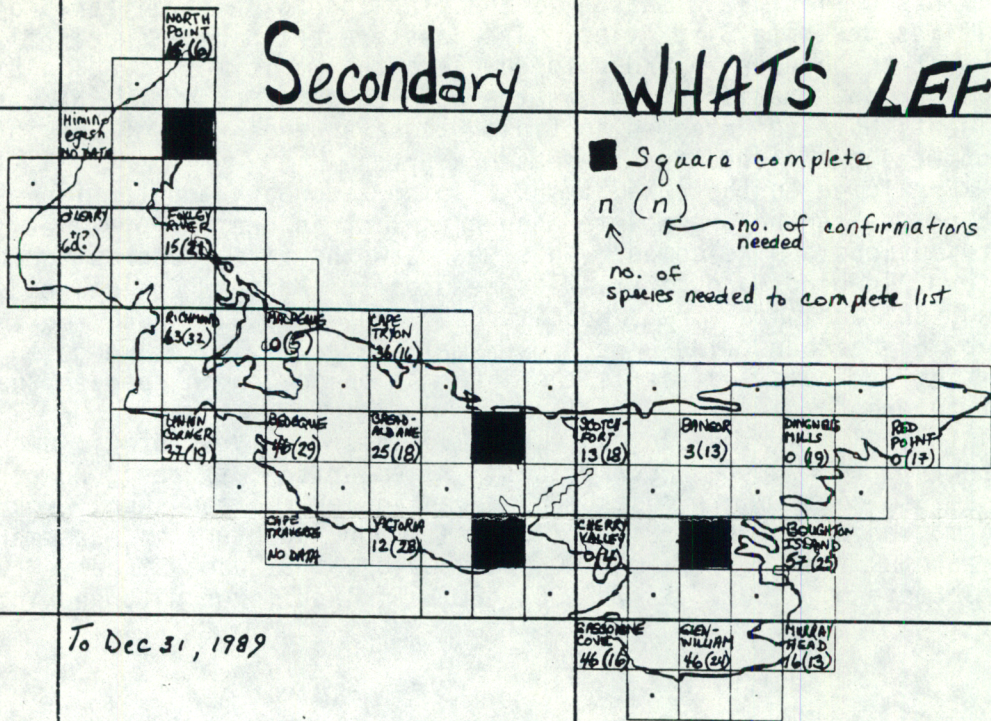 Secondary WHAT'S LEF
Square complete
n (n)
no. of confirmations
needed
no. of
species needed to complete list
NORTH
POINT
EGASH
NO DATA
O'LEARY
FOXLEY
RIVER
15(21)
RICHMOND
63(32)
0(5)
CAPE
TRYON
36(16)
CORNER
37(19)
BEDEQUE
46(29)
25(18)
SCOTCH-
FORT
13(18)
BANGOR
3(13)
MILLS
0(19)
RED
POINT
0(17)
CAPE
NO DATA
VICTORIA
12(28)
CHERRY
VALLEY
BOUGHTON
ISLAND
57(25)
COVE
46(16)
GLEN-
WILLIAM
46(24)
MURRAY
HEAD
16(13)
To Dec 31, 1989